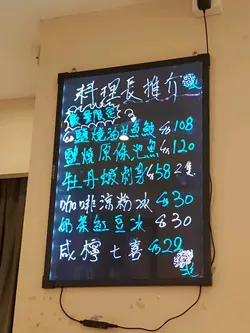 料理長推介
數量限定
鹽燒油甘魚鮫 $108
鹽燒原條池魚 $120
牡丹蝦刺身 $58 2隻
咖啡涼粉冰 $30
奶茶紅豆冰 $30
咸檸七喜 $22